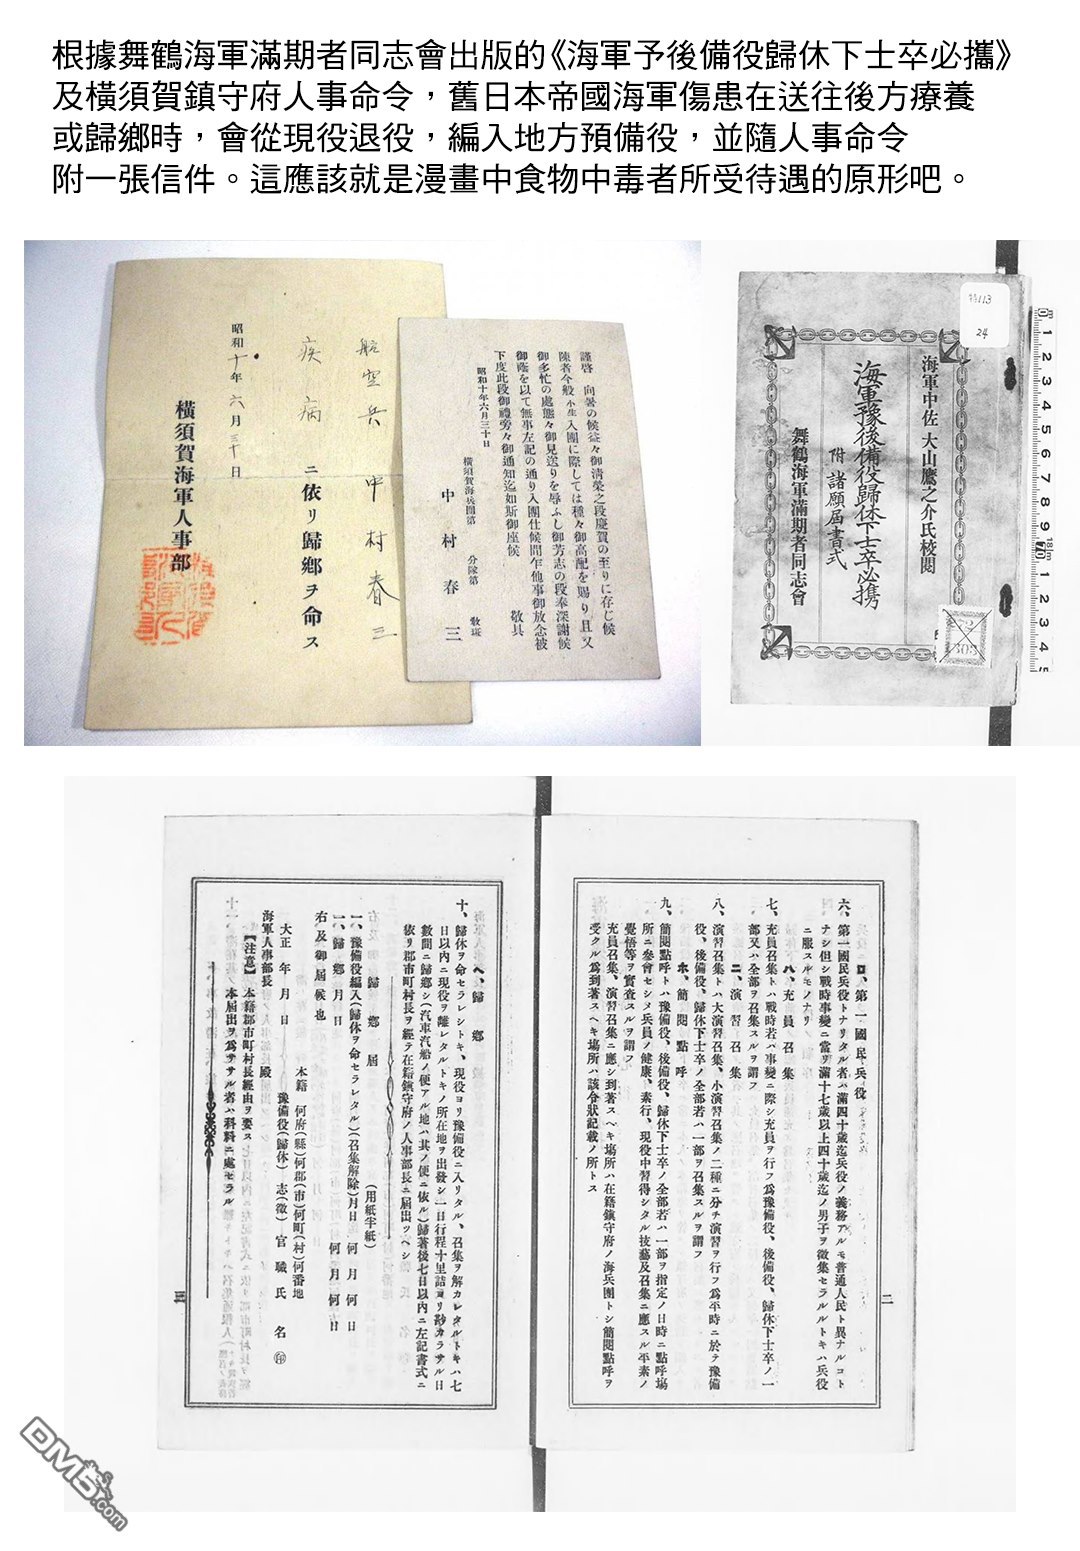 根據舞鶴海軍滿期者同志會出版的《海軍予後備役歸休下士卒必攜》
及橫須賀鎮守府人事命令，舊日本帝國海軍傷患在送往後方療養
或歸鄉時，會從現役退役，編入地方預備役，並隨人事命令
附一張信件。這應該就是漫畫中食物中毒者所受待遇的原形吧。
航空兵 中村春三
疾病ニ依リ歸鄉ヲ命ス
昭和十年六月三十日
橫須賀海軍人事部
謹啓 向暑の候益々御淸榮之段慶賀の至りに存じ候
陳者今般小生入團に際しては種々御高配を賜り且又
御多忙の處態々御見送りを辱ふし御芳志の段奉深謝候
御蔭を以て無事左記の通り入團仕候間乍他事御放念被
下度此段御禮旁々御通知迄如斯御座候
敬具
昭和十年六月三十日
橫須賀海兵團第 分隊第 敎班
中村春三
特113
24
海軍中佐 大山鷹之介氏校閱
海軍豫後備役歸休下士卒必携
附 諸願屆書式
舞鶴海軍滿期者同志會
72
303
ロ、第一國民兵役
六、第一國民兵役トナリタル者ハ滿四十歲迄兵役ノ義務アルモ普通人民ト異ナルコト
ナシ但シ戰時事變ニ當リ滿十七歲以上四十歲迄ノ男子ヲ徵集セラルルトキハ兵役
ニ服スルモノナリ
ハ、充員召集
七、充員召集トハ戰時若ハ事變ニ際シ充員ヲ行フ爲豫備役、後備役、歸休下士卒ノ一
部又ハ全部ヲ召集スルヲ謂フ
ニ、演習召集
八、演習召集トハ大演習召集、小演習召集ノ二種ニ分チ演習ヲ行フ爲平時ニ於テ豫備
役、後備役、歸休下士卒ノ全部若ハ一部ヲ召集スルヲ謂フ
ホ、簡閱點呼
九、簡閱點呼トハ豫備役、後備役、歸休下士卒ノ全部若ハ一部ヲ指定ノ日時ニ點呼場
所ニ參會セシメ兵員ノ健康、素行、現役中習得シタル技藝及召集ニ應スル平素ノ
覺悟等ヲ實査スルヲ謂フ
充員召集、演習召集ニ應シ到著スヘキ場所ハ在籍鎭守府ノ海兵團トシ簡閱點呼ヲ
受クル爲到著スヘキ場所ハ該令狀記載ノ所トス
二
ヘ、歸鄕
十、歸休ヲ命セラレシトキ、現役ヨリ豫備役ニ入リタル、召集ヲ解カレタルトキハ七
日以內ニ現役ヲ離レタルトキノ所在地ヲ出發シ一日行程十里詰ヨリ尠カラサル日
數間ニ歸鄕シ(汽車汽船ノ便アル地ハ其ノ便ニ依ル)歸著後七日以內ニ左記書式ニ
依リ郡市町村長ヲ經テ在籍鎭守府ノ人事部長ニ屆出ツヘシ
(用紙半紙)
歸鄕屆
一、豫備役編入(歸休ヲ命セラレタル)(召集解除)月日 何月何日
一、歸鄕月日 何月何日
右及御屆候也
本籍 何府(縣)何郡(市)何町(村)何番地
大正 年 月 日
豫備役(歸休) 志(徵) 官職氏名㊞
海軍人事部長 殿
【注意】 本籍郡市町村長經由ヲ要ス
本屆出ヲ爲ササル者ハ科料ニ處セラル
三
DM5.com